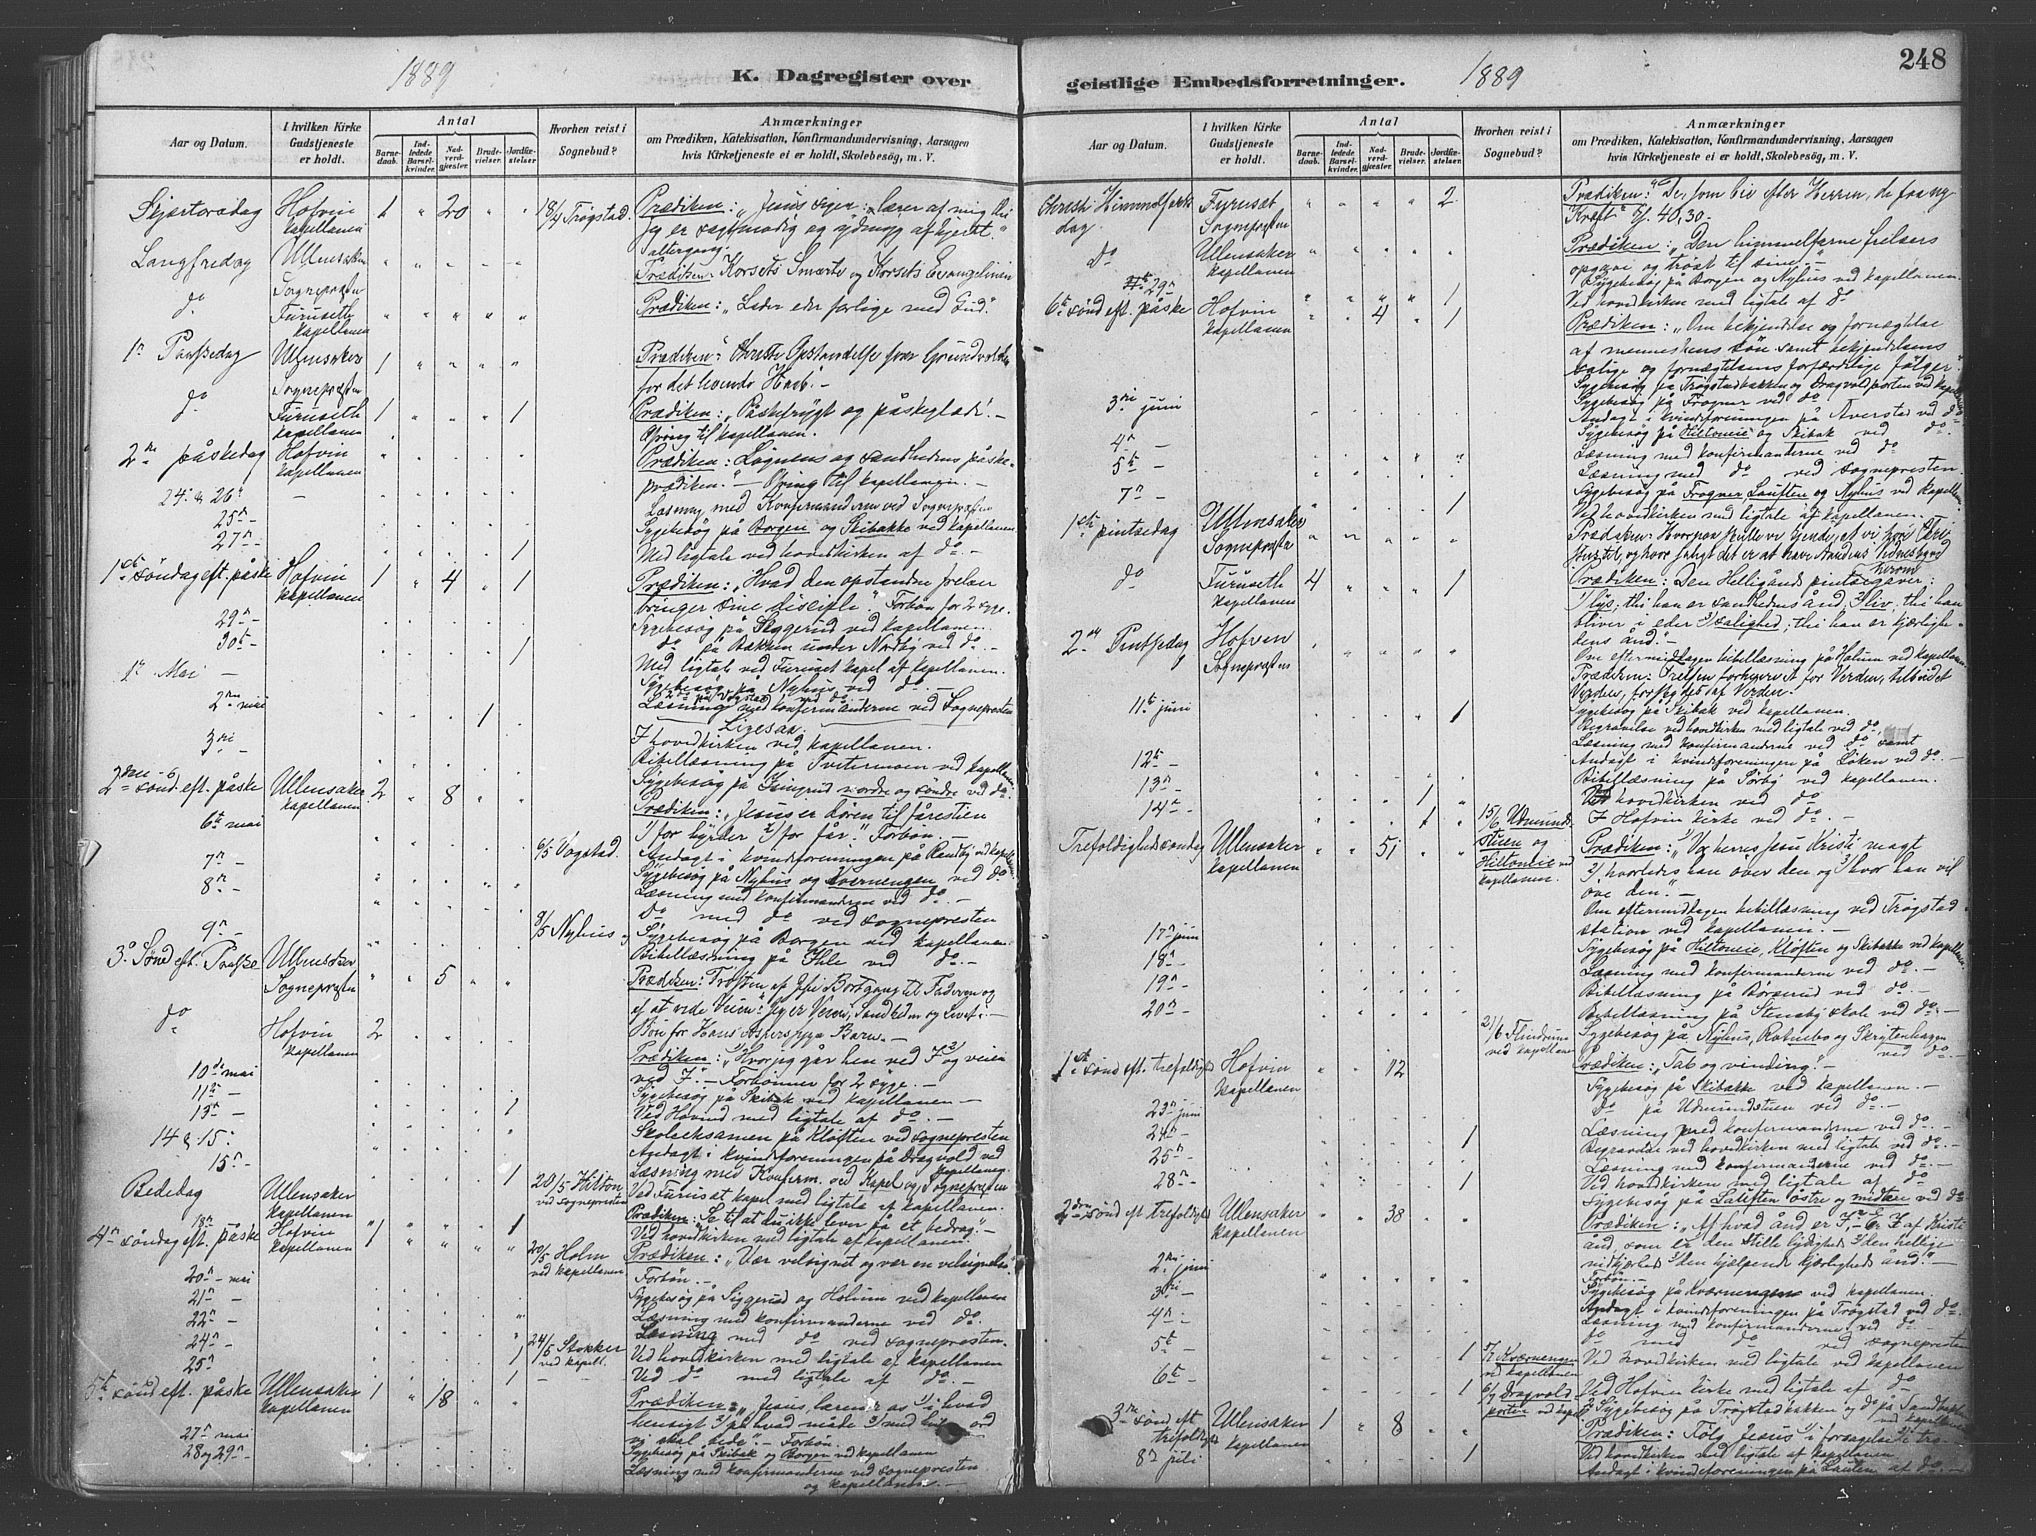 1889
K. Dagregister over
Aar og Datum.
I hvilken Kirke Gudstjeneste er holdt.
Antal
Barnedaab.
Indledede Barselkvinder.
Nadverdgjæster.
Brudevielser.
Jordfæstelser
Hvorhen reist i Sognebud?
Anmærkninger
om Prædiken, Katekisation, Konfirmandundervisning, Aarsagen
hvis Kirketjeneste ei er holdt, Skolebesøg, m. V.
Skjærtorsdag Hofvin 1 " 20 " " 18/4 Trøgstad. Prædiken: "Jesus siger: lærer af mig thi
kapellanen jeg er sagtmodig og ydmyg af hjertet."
altergang.
Langfredag Ullensaker " " " " " Prædiken: Korsets Smerte og Korsets Evangelium
Sognepræsten
do Furuseth " " " " " Prædiken: "Lader eder forlige med Gud"
kapellanen
1n Paaskedag Ullensaker 1 " " " " Prædiken: Christi Opstandelse
Sognepræsten for det levende Haab. -
do Furuseth 1 " " " 1 Prædiken: "Påskefrygt og påskeglæde". -
kapellanen Ofring til kapellanen.
2den påskedag Hofvin Prædiken: Løgnens og sandhedens påske-
kapellanen prædiken." - Ofring til kapellanen. -
24. & 26. - Læsning med Konfirmanderne ved Sognepræsten
25n - Sygebesøg på Borgen og Skibakke ved kapellanen
27n - 1 Med ligtale ved hovedkirken af do. -
1ste søndag eft. påske Hofvin 1 " 4 " 1 Prædiken: "Hvad den opstandne frelser
kapellanen bringer sine disciple." Forbøn for 2 syge.
29n - Sygebesøg på Siggerud ved kapellanen.
30te - do på Bakken under Nordby ved do. -
1n Mai - 1 Med ligtale ved Furuset kapel af kapellanen.
Sygebesøg på Nyhus ved do -
2den mai Læsning med konfirmanderne ved Sognepresten
3die - 1 I hovedkirken ved kapellanen.
Bibellæsning på Tveitermoen ved kapellanen
2den sønd. eft. påske Ullensaker 2 " 8 " " Sygebesøg på Isingrud nordre og søndre ved do
kapellanen Prædiken: "Jesus er døren til fårestien
1/ for hyrder 2/ for får." Forbøn. -
6te mai 6/5 Vogstad. Andagt i kvindeforeningen på Randby ved kapellanen
7n - Sygebesøg på Nyhus og Kverneengen ved do
8n - Læsning med konfirmanderne ved do. -
do med do ved sognepresten
9n - 9/5 Nyhus Sygebesøg på Borgen ved kapellanen
Bibellæsning på Ihle ved do. -
3. Sønd. eft. Paaske Ullensaker " " 5 " " Prædiken: Trøsten af Jesu Bortgang til Faderen og
Sognepræsten af at vide Veien: Jeg er Veien, Sandheden og Livet. -
do Hofvin 2 Prædiken: "1/ Hvor jeg går hen ved I 2/ og veien
kapellanen ved I". - Forbønner for 2 syge. -
10de mai Sygebesøg på Skibak ved kapellanen -
11te - 1 Ved Hovind med ligtale af do. -
13n - Skoleeksamen på Kløften ved sognepresten
14 & 15. Andagt i kvindeforeningen på Dragvold ved kapellanen.
15n - Læsning med Konfirm. ved Kapel og Sognepræsten
1 20/5 Hilton Ved Furuset kapel med ligtale af kapellanen.
ved sognepresten
Bededag Ullensaker Prædiken: Se til at du ikke lever på et bedrag". -
kapellanen
18n " 1 " " 1 Ved hovedkirken med ligtale af kapellanen.
4n søndag eft. påske Hofvin 1 " " " " 20/5 Holm Prædiken: "Vær velsignet og vær en velsignelse."
kapellanen ved kapellanen Forbøn. -
20n mai Sygebesøg på Siggerud og Holum ved kapellanen
21n - Læsning med konfirmanderne ved do.
22n - Læsning med do ved sognepresten.
24n - 1 24/5 Stokker Ved hovedkirken med ligtale af kapellanen
ved kapell.
25n 1 Ved do med ligtale af do. -
5te sønd eft. påske Ullensaker 1 " 18 " " Prædiken: "Jesus lærer os 1/ i hvad
kapellanen hensigt 2/ på hvad måde 3/ med hvilke ord
27n mai vi skal bede". - Forbøn.
28 og 29n - Sygebesøg på Skibak og Borgen ved kapellanen
Læsning med konfirmanderne ved sognepresten
og kapellanen. -
1889
248
geistlige Embedsforretninger.
Aar og Datum.
I hvilken Kirke Gudstjeneste er holdt.
Antal
Barnedaab.
Indledede Barselkvinder.
Nadverdgjæster.
Brudevielser.
Jordfæstelser.
Hvorhen reist i Sognebud?
Anmærkninger
om Prædiken, Katekisation, Konfirmandundervisning, Aarsagen
hvis Kirketjeneste ei er holdt, Skolebesøg, m. V.
Christi Himmelfarts Furuset " " " " 2 Prædiken: "De, som bie efter Herren, de faa ny
dag Sognepresten Kraft" Es. 40,30.-
do Ullensaker " " " " " Prædiken: "Den himmelfarne frelsers
kapellanen opgave og trøst til sine."
29n Sygebesøg på Borgen og Nyhus ved kapellanen.
" " " " 1 Ved hovedkirken med ligtale af do
6te sønd eft. påske Hofvin " " 4 " 1 Prædiken: "Om bekjendelse og fornegtelse
kapellanen af menneskens søn samt bekjendelsens
salige og fornegtelsens forfærdelige følger."
Sygebesøg på Trøgstadbakken og Dragvoldporten ved kapellanen
3die juni Sygebesøg på Frogner ved do
Andagt i kvindeforeningen på Averstad ved do
4n - Sygebesøg på Hiltoneie og Skibak ved do.
5te - Læsning med konfirmanderne ved do
Læsning med do ved sognepresten.
7n - Sygebesøg på Frogner, Lauften og Nyhus ved kapellanen
1 Ved hovedkirken med ligtale af kapellanen.
1ste pintsedag Ullensaker " " " " " Prædiken: Hvorpaa skulle vi kjende, at vi høre Christus
Sognepræsten til, og hvor saligt det er at have Aandens Vidnesbyrd herom
do Furuseth 4 " " " 1 Prædiken: Den Helligånds pintsegaver:
kapellanen 1/ lys; thi han er sandhedens ånd; 2/ liv; thi han
bliver i eder 3/ salighed; thi han er kjærlighe-
dens ånd."
2den Pintsedag Hofven Om eftermiddagen bibellæsning på Holum ved kapellanen.
Sognepræsten
Sygebesøg på Skibak ved kapellanen.
11te juni 1 Begravelse ved hovedkirken med ligtale ved do.
Læsning med konfirmanderne ved do samt
12te - Andagt i kvindeforeningen på Løken ved do. -
13n - Bibellæsning på Sørby ved kapellanen.
14n - 1 " Ved hovedkirken ved do
1 " 15/6 Udmund- I Hofvin kirke ved do.
Trefoldighedssøndag Ullensaker " " 51 " " stuen og Prædiken: 1/ "Vor herres Jesu Kristi magt
kapellanen Hiltoneie ved 2/ hvorledes han över den og 3/ hvor han vil
kapellanen. öve den." -
Om eftermiddagen bibellæsning ved Trøgstad
station ved kapellanen. -
17n juni Sygebesøg på Hiltoneie, Kløften og Skibakke ved kapellanen
18n - Læsning med konfirmanderne ved do. -
19n - Bibellæsning på Børserud ved do. -
20n - Bibellæsning på Stensby skole ved do. -
21/6 Flindrum Sygebesøg på Nyhus, Rotnebo og Skrytenhagen
ved kapellanen ved do. -
1ste sønd eft. trefoldighed Hofvin " " 12 Prædiken: "Tab og vinding." -
kapellanen Sygebesøg på Skibakke ved kapellanen. -
23n juni do på Udmundstuen ved do. -
24n - Læsning med konfirmanderne ved do. -
1 Begravelse ved hovedkirken med ligtale ved do.
25n - Læsning med konfirmanderne ved do. -
28n - 1 Ved hovedkirken med ligtale af do
Sygebesøg på Laliften østre og midtre ved do
2den sønd eft. trefoldighed Ullensaker " " 38 " " Prædiken: "Af hvad ånd er I, - Er I af Kristi
kapellanen ånd som er den 1/ stille lydigheds 2/ den hellige
nidkjærheds 3/ den hjælpende kjærligheds ånd." -
Forbøn. -
2den juni Sygebesøg på Kverneengen ved kapellanen.
3die - Andagt i kvindeforeningen på Trøgstad ved do.
4n - Læsning med konfirmanderne ved do -
5te do med do ved sognepresten
1 5/7 Kværnengen Ved hovedkirken med ligtale af kapellanen
ved kapellanen
6te - 1 6/7 Dragvold- Ved Hofvin kirke med ligtale af do
porten ved kapell. Sygebesøg på Trøgstadbakken og do på Sandbakken
ved kapellanen
3die sønd eft Ullensaker 1 " 8 " " Prædiken: Følg Jesus
trefoldighed kapellanen
8n juli 1 Ved hovedkirken med ligtale af kapellanen
Andagt i kvindeforeningen på Lauten af do. -